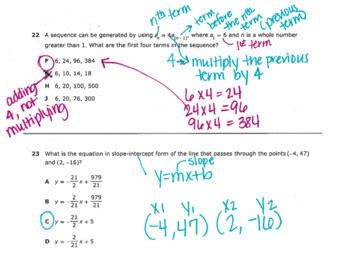 nth term
term before the nth term (previous term)
22 A sequence can be generated by using aₙ = 4a₍ₙ₋₁₎, where a₁ = 6 and n is a whole number
greater than 1. What are the first four terms in the sequence?
1st term
F 6, 24, 96, 384
4 → multiply the previous
term by 4
G 6, 10, 14, 18
H 6, 20, 100, 500
J 6, 20, 76, 300
adding
4, not
multiplying
6 x 4 = 24
24 x 4 = 96
96 x 4 = 384
23 What is the equation in slope-intercept form of the line that passes through the points (−4, 47)
and (2, −16)?
slope
y = mx + b
A y = −21/2 x + 979/21
B y = −2/21 x + 979/21
C y = −21/2 x + 5
D y = −2/21 x + 5
x1 y1 x2 y2
(-4, 47) (2, -16)